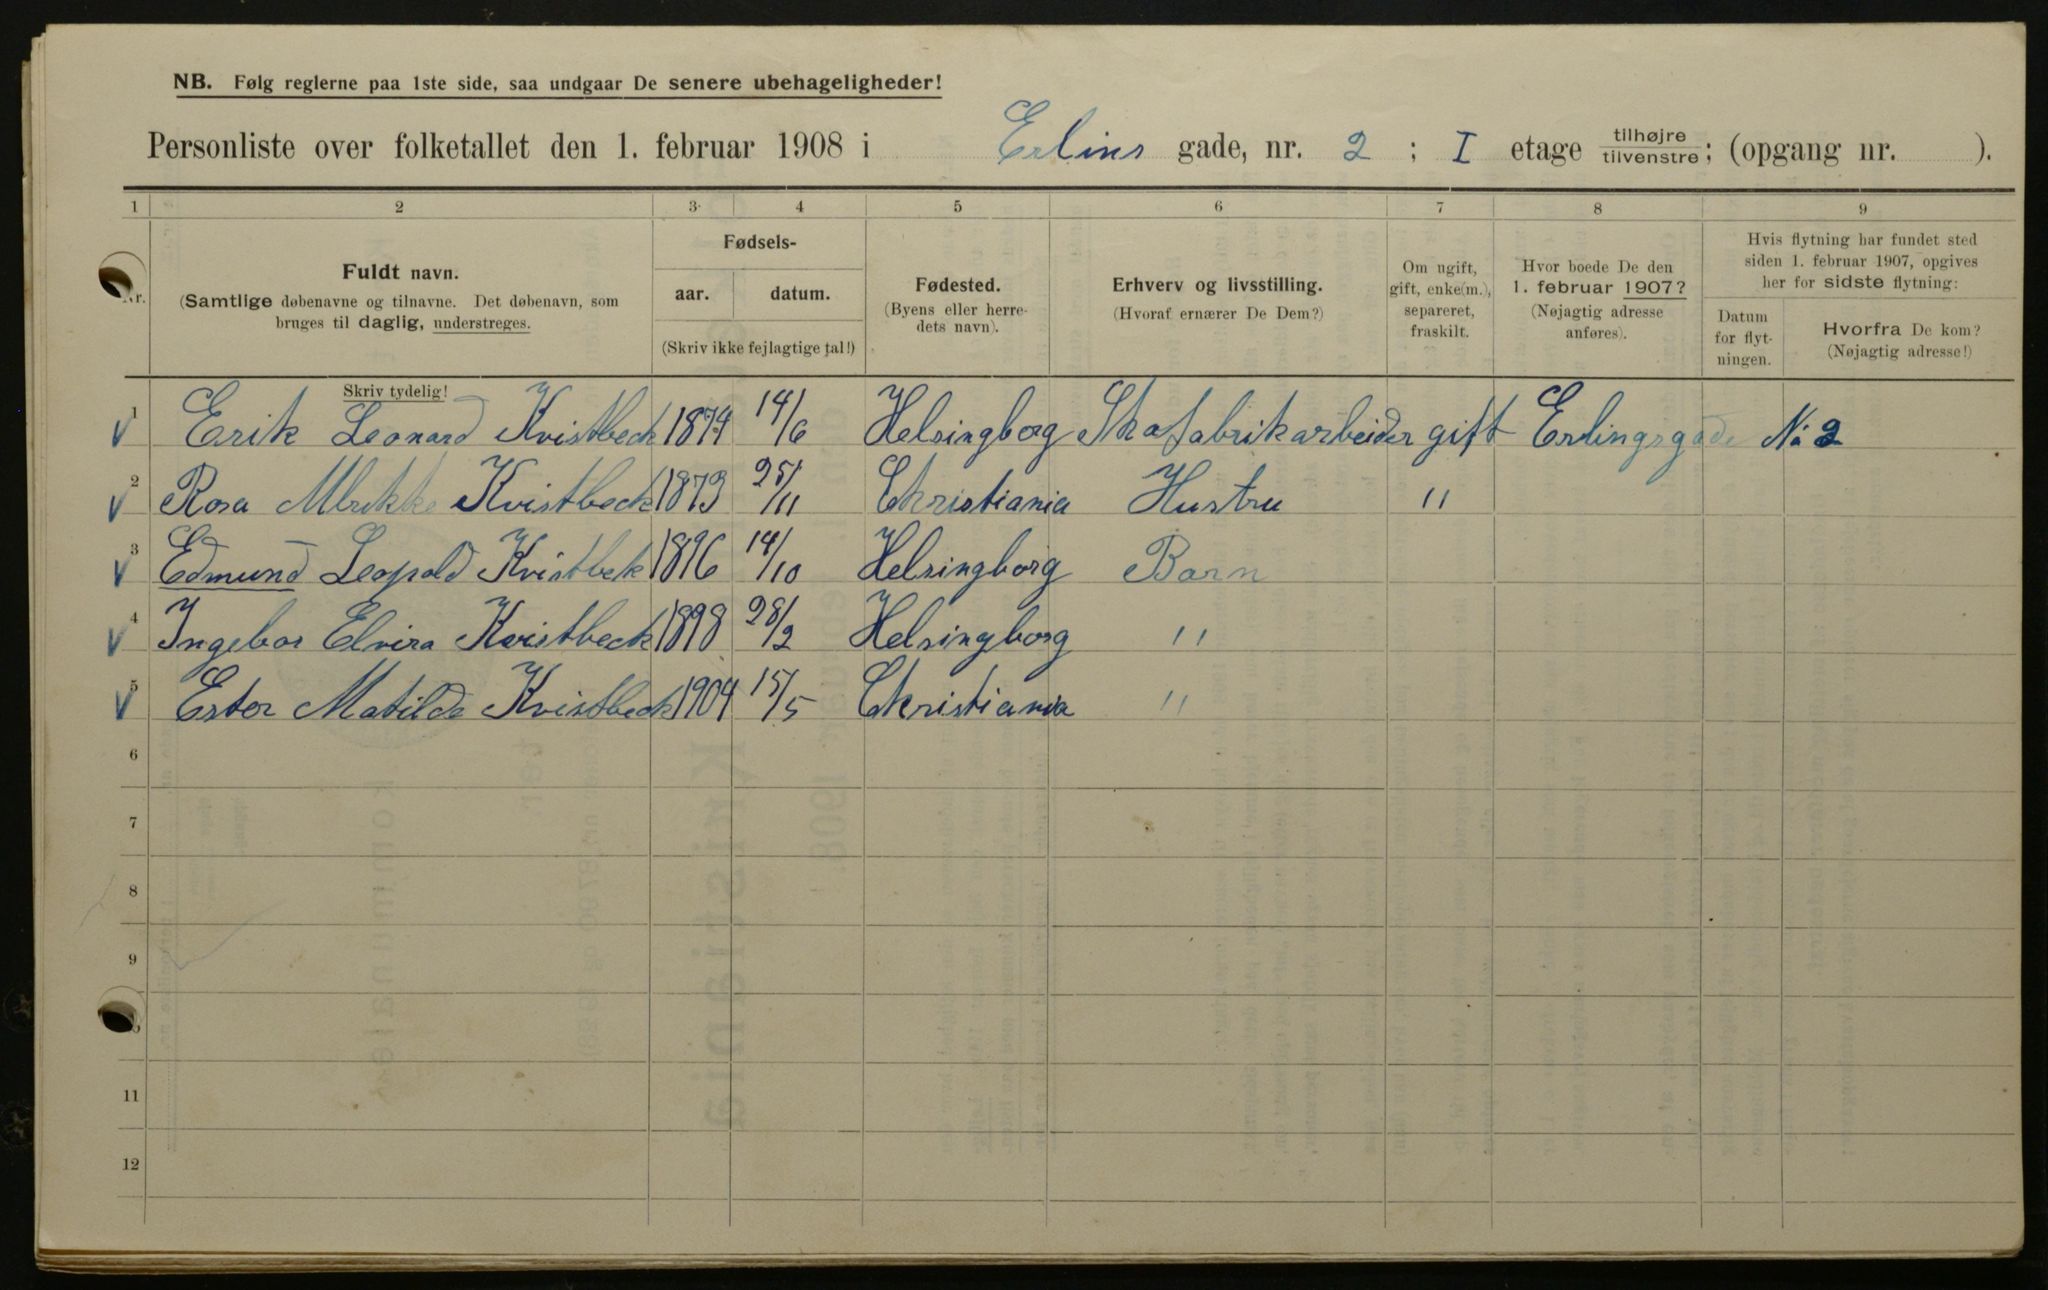 NB. Følg reglerne paa 1ste side, saa undgaar De senere ubehageligheder!
Personliste over folketallet den 1. februar 1908 i Erlins gade, nr. 2 ; I etage tilhøjre/tilvenstre; (opgang nr. ).
1 2 3 4 5 6 7 8 9
Nr.
Fuldt navn.
(Samtlige døbenavne og tilnavne. Det døbenavn, som
bruges til daglig, understreges.
Skriv tydelig!
Fødsels-
aar. datum.
(Skriv ikke fejlagtige tal!)
Fødested.
(Byens eller herre-
dets navn).
Erhverv og livsstilling.
(Hvoraf ernærer De Dem?)
Om ugift,
gift, enke(m.),
separeret,
fraskilt.
Hvor boede De den
1. februar 1907?
(Nøjagtig adresse
anføres).
Hvis flytning har fundet sted
siden 1. februar 1907, opgives
her for sidste flytning:
Datum
for flyt-
ningen.
Hvorfra De kom?
(Nøjagtig adresse!)
1 Erik Leonard Kvistbeck 1874 14/6 Helsingborg Skofabrikarbeider gift Erlingsgade No 2
2 Rosa Ulrikke Kvistbeck 1873 25/11 Christiania Hustru "
3 Edmund Leopold Kvistbek 1896 14/10 Helsingborg Barn
4 Ingebor Elvira Kvistbeck 1898 28/2 Helsingborg "
5 Ester Matilde Kvistbeck 1904 15/5 Christiania "
6
7
8
9
11
12